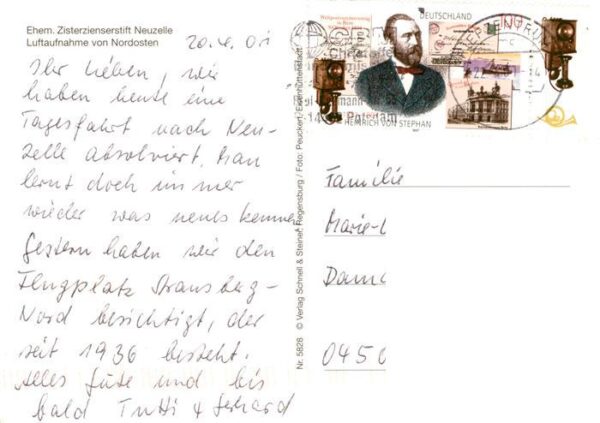 Ehem. Zisterzienserstift Neuzelle
Luftaufnahme von Nordosten
20.4.01
Ihr Lieben, wir
haben heute eine
Tagesfahrt nach Neu-
zelle absolviert. Man
lernt doch immer
wieder was neues kennen.
Gestern haben wir den
Flugplatz Strausberg-
Nord besichtigt, der
seit 1936 besteht.
Alles Gute und bis
bald Tutti + Gerhard
Nr. 5828 © Verlag Schnell & Steiner, Regensburg / Foto: Peuckert, Eisenhüttenstadt
DEUTSCHLAND
HEINRICH VON STEPHAN
Potsdam
Familie
Marie-
Dam
0450